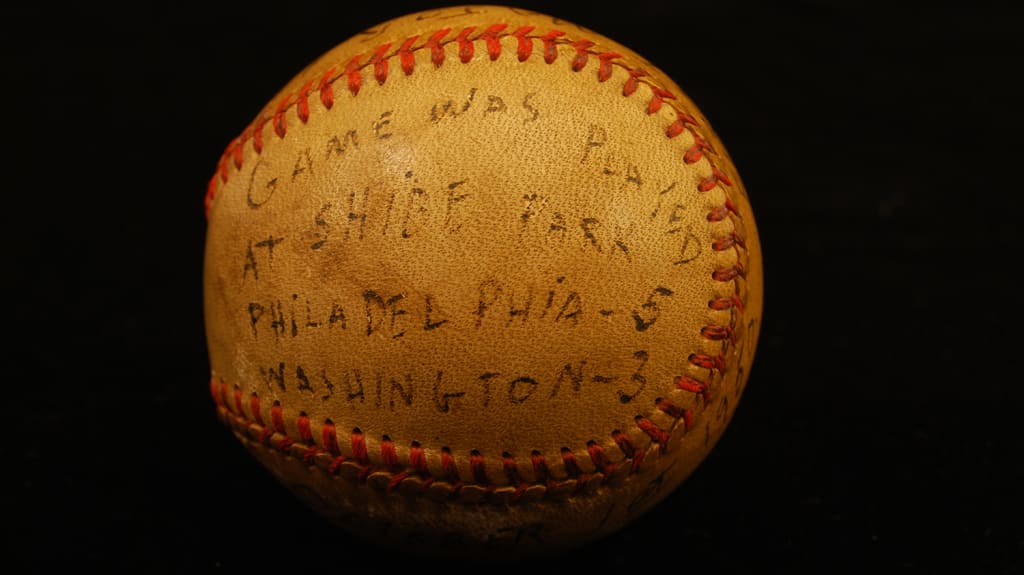 GAME WAS PLAYED
AT SHIBE PARK
PHILADELPHIA-5
WASHINGTON-3